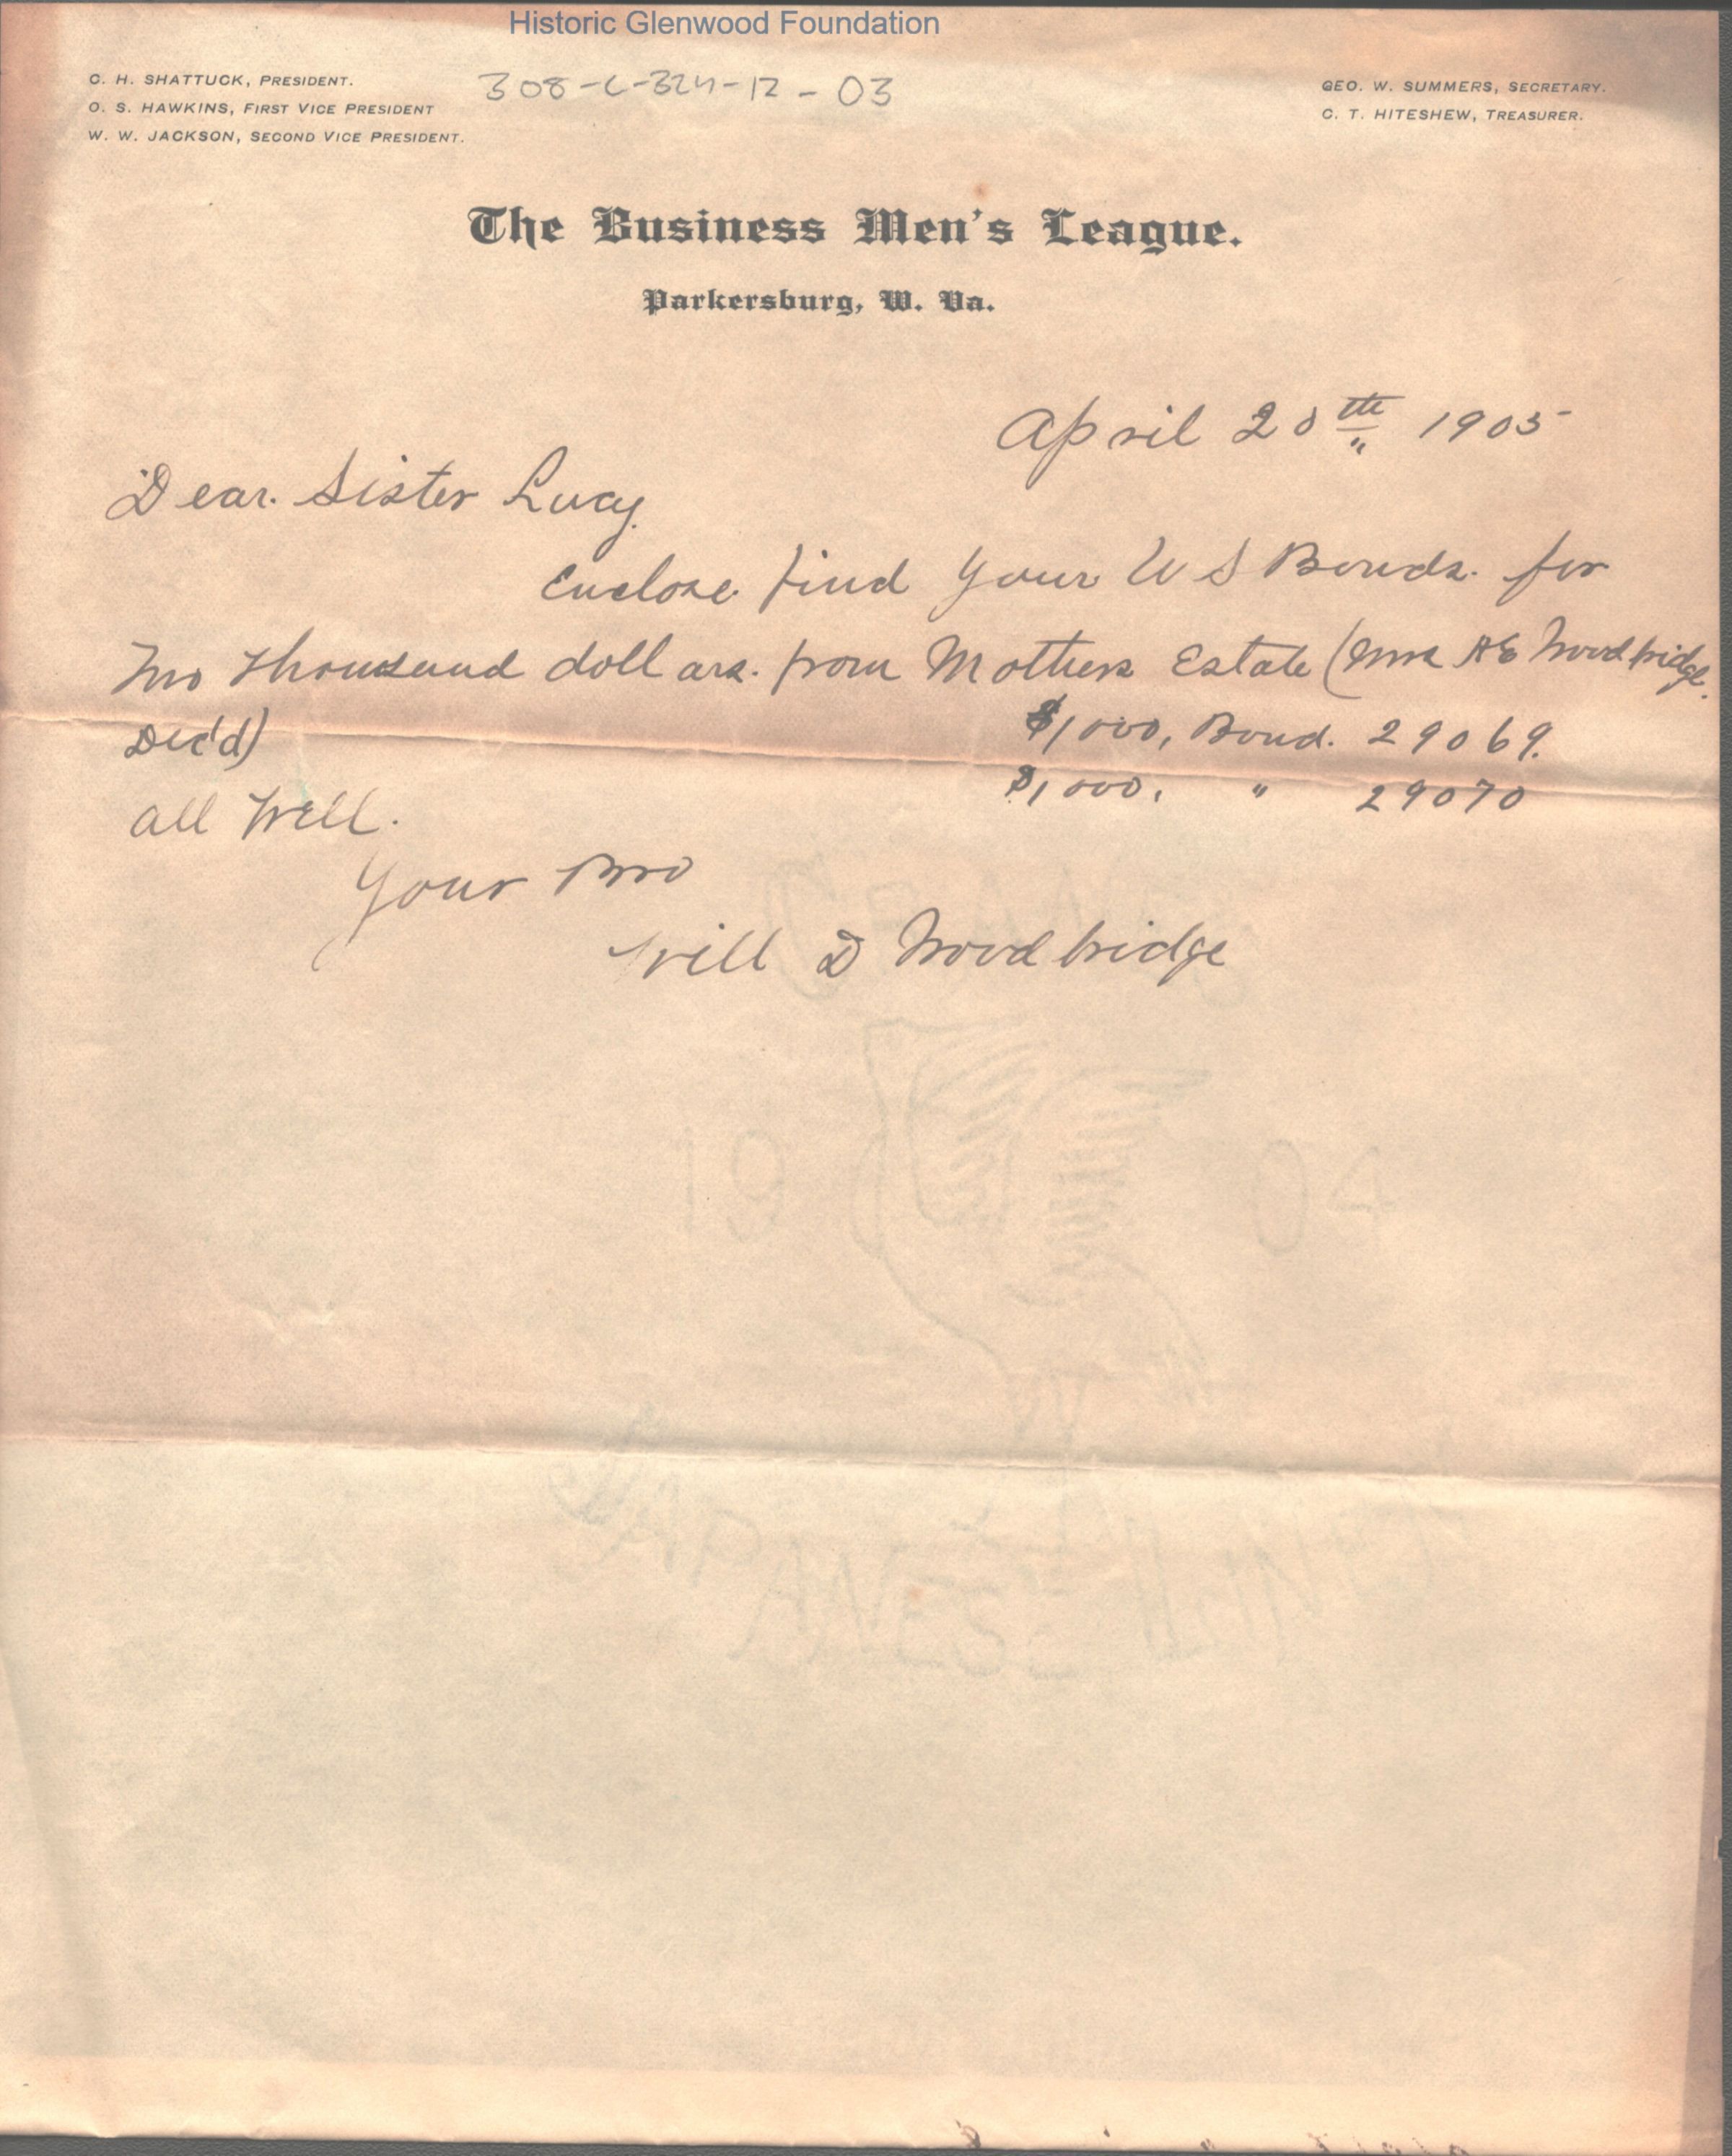 Historic Glenwood Foundation
308-C-324-12-03
C. H. SHATTUCK, PRESIDENT.
O. S. HAWKINS, FIRST VICE PRESIDENT
W. W. JACKSON, SECOND VICE PRESIDENT.
GEO. W. SUMMERS, SECRETARY.
C. T. HITESHEW, TREASURER.
The Business Men's League.
Parkersburg, W. Va.
April 20th 1905
Dear. Sister Lucy.
Enclose find your U S Bonds. for
Two thousand dollars. from Mothers Estate (Mrs A E Woodbridge.
Dec'd)
$1000, Bond. 29069.
$1000, " 29070
all Well.
Your Bro
Will D Woodbridge
19 04